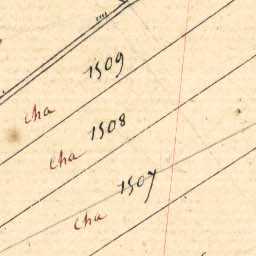 1509
cha
1508
cha
1507
cha